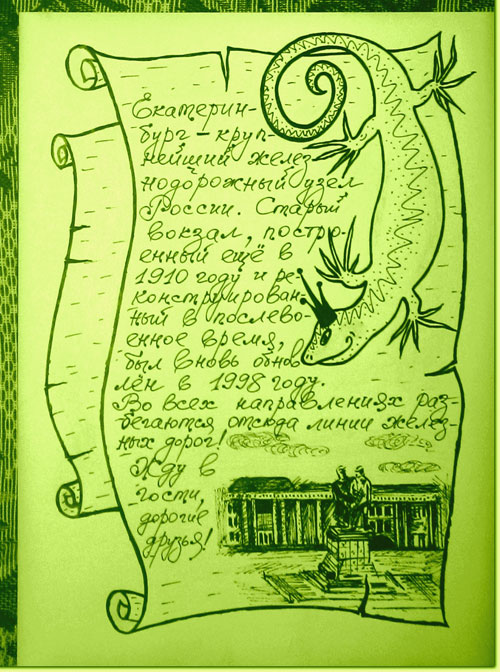 Екатерин-
бург – круп-
нейший желез
нодорожный узел
России. Старый
вокзал, постро-
енный ещё в
1910 году и ре-
конструирован-
ный в послево-
енное время,
был вновь обнов
лён в 1998 году.
Во всех направлениях раз-
бегаются отсюда линии желез-
ных дорог!
Жду в
гости,
дорогие
друзья!